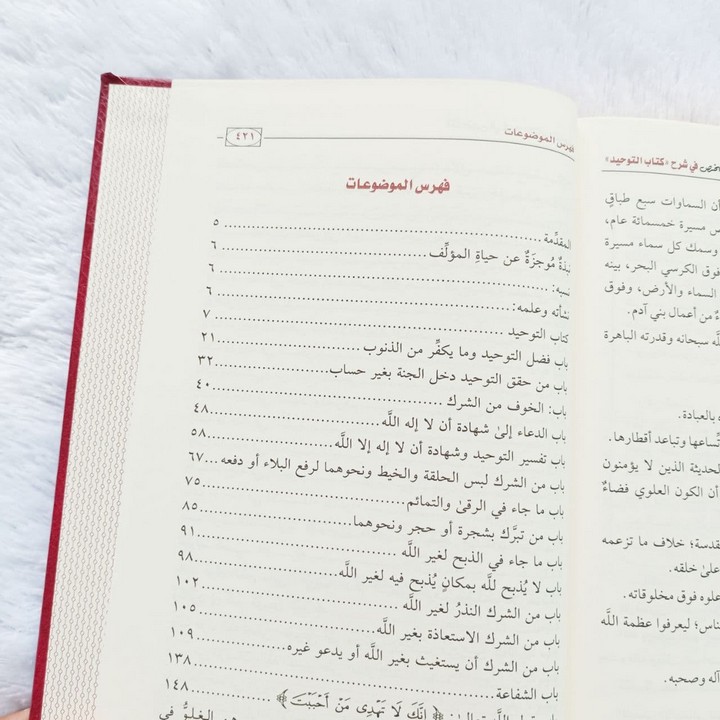 فهرس الموضوعات
٤٢١
فهرس الموضوعات
المقدِّمة ٥
نبذةٌ مُوجزَةٌ عن حياةِ المؤلِّف ٦
نسبه: ٦
نشأته وعلمه: ٦
كتاب التوحيد ٧
باب فضل التوحيد وما يكفِّر من الذنوب ٢١
باب من حقق التوحيد دخل الجنة بغير حساب ٣٢
باب: الخوف من الشرك ٤٠
باب الدعاء إلىٰ شهادة أن لا إله اللَّه ٤٨
باب تفسير التوحيد وشهادة أن لا إله إلا اللَّه ٥٨
باب من الشرك لبس الحلقة والخيط ونحوهما لرفع البلاء أو دفعه ٦٧
باب ما جاء في الرقىٰ والتمائم ٧٥
باب من تبرَّك بشجرة أو حجر ونحوهما ٨٥
باب ما جاء في الذبح لغير اللَّه ٩١
باب لا يُذبح للَّه بمكانٍ يُذبح فيه لغير اللَّه ٩٨
باب من الشرك النذرُ لغير اللَّه ١٠٢
باب من الشرك الاستعاذة بغير اللَّه ١٠٥
باب من الشرك أن يستغيث بغير اللَّه أو يدعو غيره ١٠٩
باب الشفاعة ١٣٨
﴿إِنَّكَ لَا تَهْدِي مَنْ أَحْبَبْتَ﴾ ١٤٨
الغلوُّ في
في شرح «كتاب التوحيد»
أن السماوات سبع طباقٍ
مسيرة خمسمائة عام،
وسمك كل سماء مسيرة
فوق الكرسي البحر، بينه
السماء والأرض، وفوق
من أعمال بني آدم.
اللَّه سبحانه وقدرته الباهرة
بالعبادة.
وتباعد أقطارها.
الحديثة الذين لا يؤمنون
أن الكون العلوي فضاءٌ
خلاف ما تزعمه
علىٰ خلقه.
علوه فوق مخلوقاته.
ليعرفوا عظمة اللَّه
وآله وصحبه.